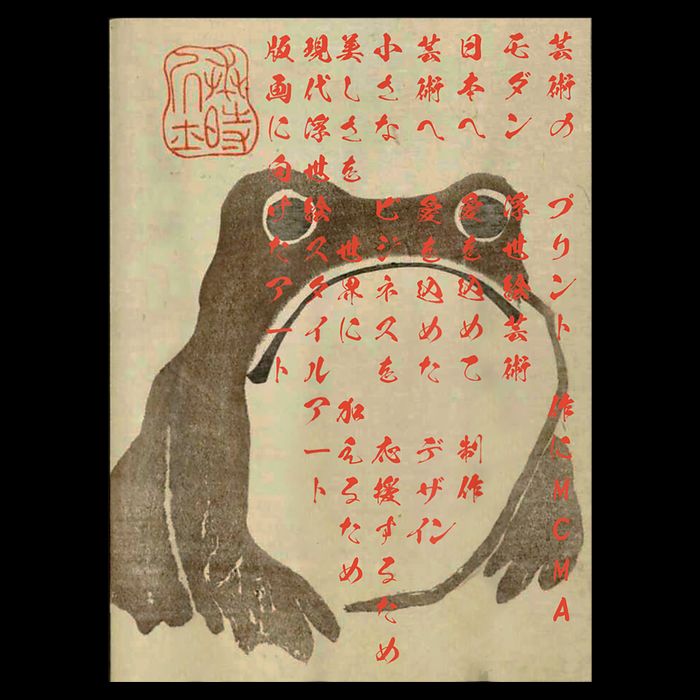 芸術の プリント 作にMCMA
モダン 浮世絵芸術
日本へ 愛を込めて 制作
芸術へ 愛を込めた デザイン
小さな ビジネスを 応援するため
美しさを 世界に 加えるため
現代浮世絵スタイルアート
版画に向けたアート